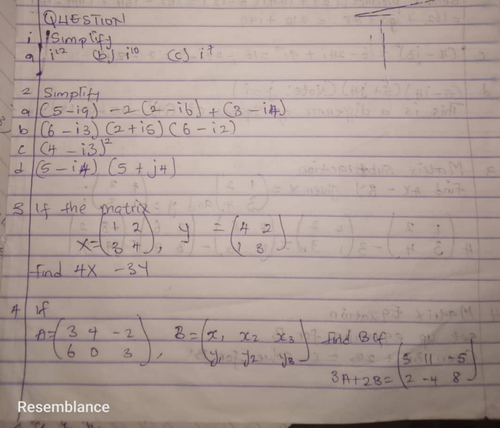 QUESTION
i Simplify
a i¹² (b) i¹⁰ (c) i⁷
2 Simplify
a (5-i9) -2(2-i6) + (3-i4)
b (6-i3)(2+i5)(6-i2)
c (4-i3)²
d (5-i4) (5+j4)
3 if the matrix
X = (1 2
3 4), y = (4 2
1 3)
find 4X -3Y
4 if
A = (3 4 -2
6 0 3), B = (x₁ x₂ x₃
y₁ y₂ y₃) find B if
3A+2B = (5 11 -5
2 -4 8)
Resemblance